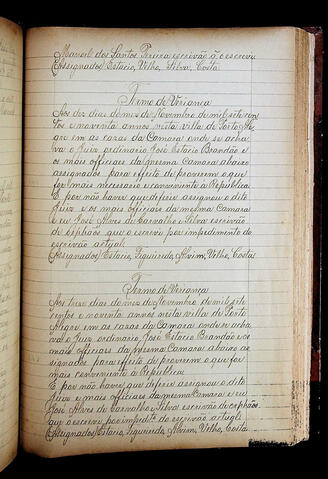 Manoel dos Santos Pereira escrivão q̃ o escrevi
Assignados Estacio, Velho, Silva, Costa
Termo de Veriança
Aos dez dias do mez de Novembro de mil sete cen
tos e noventa annos nesta villa de Porto Ale
gre em as casas da Camara onde se acha
va o Juiz ordinario José Estacio Brandão e
os mais officiaes da mesma Camara abaixo
assignados para effeito de proverem o que
for mais necessario e conveniente á Republica
E por não haver que deferir assignou o dito
Juiz e os mais officiaes da mesma Camara
e eu José Alves de Carvalho e Silva escrivão
de orphãos que o escrevi por impedimento do
escrivão actual
Assignados Estacio, Siqueira, Alvim, Velho, Costa
Termo de Veriança
Aos treze dias do mez de Novembro de mil sete
centos e noventa annos nesta villa de Porto
Alegre em as casas da Camara onde se acha
va o Juiz ordinario José Estacio Brandão e os
mais officiaes da mesma Camara abaixo as
signados para effeito de proverem o que for
mais conveniente á Republica
E por não haver que deferir assignou o dito
Juiz e mais officiaes da mesma Camara e eu
José Alves de Carvalho e Silva escrivão de orphãos
que o escrevi por impedito. do escrivão actual
Assignados Estacio, Siqueira, Alvim, Velho, Costa